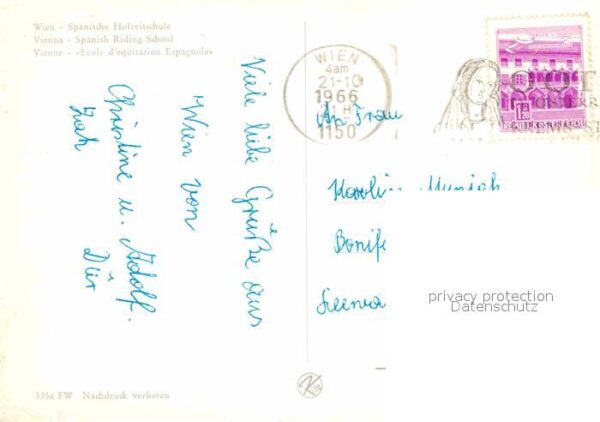 Wien - Spanische Hofreitschule
Vienna - Spanish Riding School
Vienne - «Ecole d'equitation Espagnole»
Viele liebe Grüße aus
Wien von
Christine u. Adolf
WIEN
4am
21-10
1966
1150
1.20
REPUBLIK ÖSTERREICH
An Frau
Bonif
privacy protection
Datenschutz
335a FW Nachdruck verboten
K